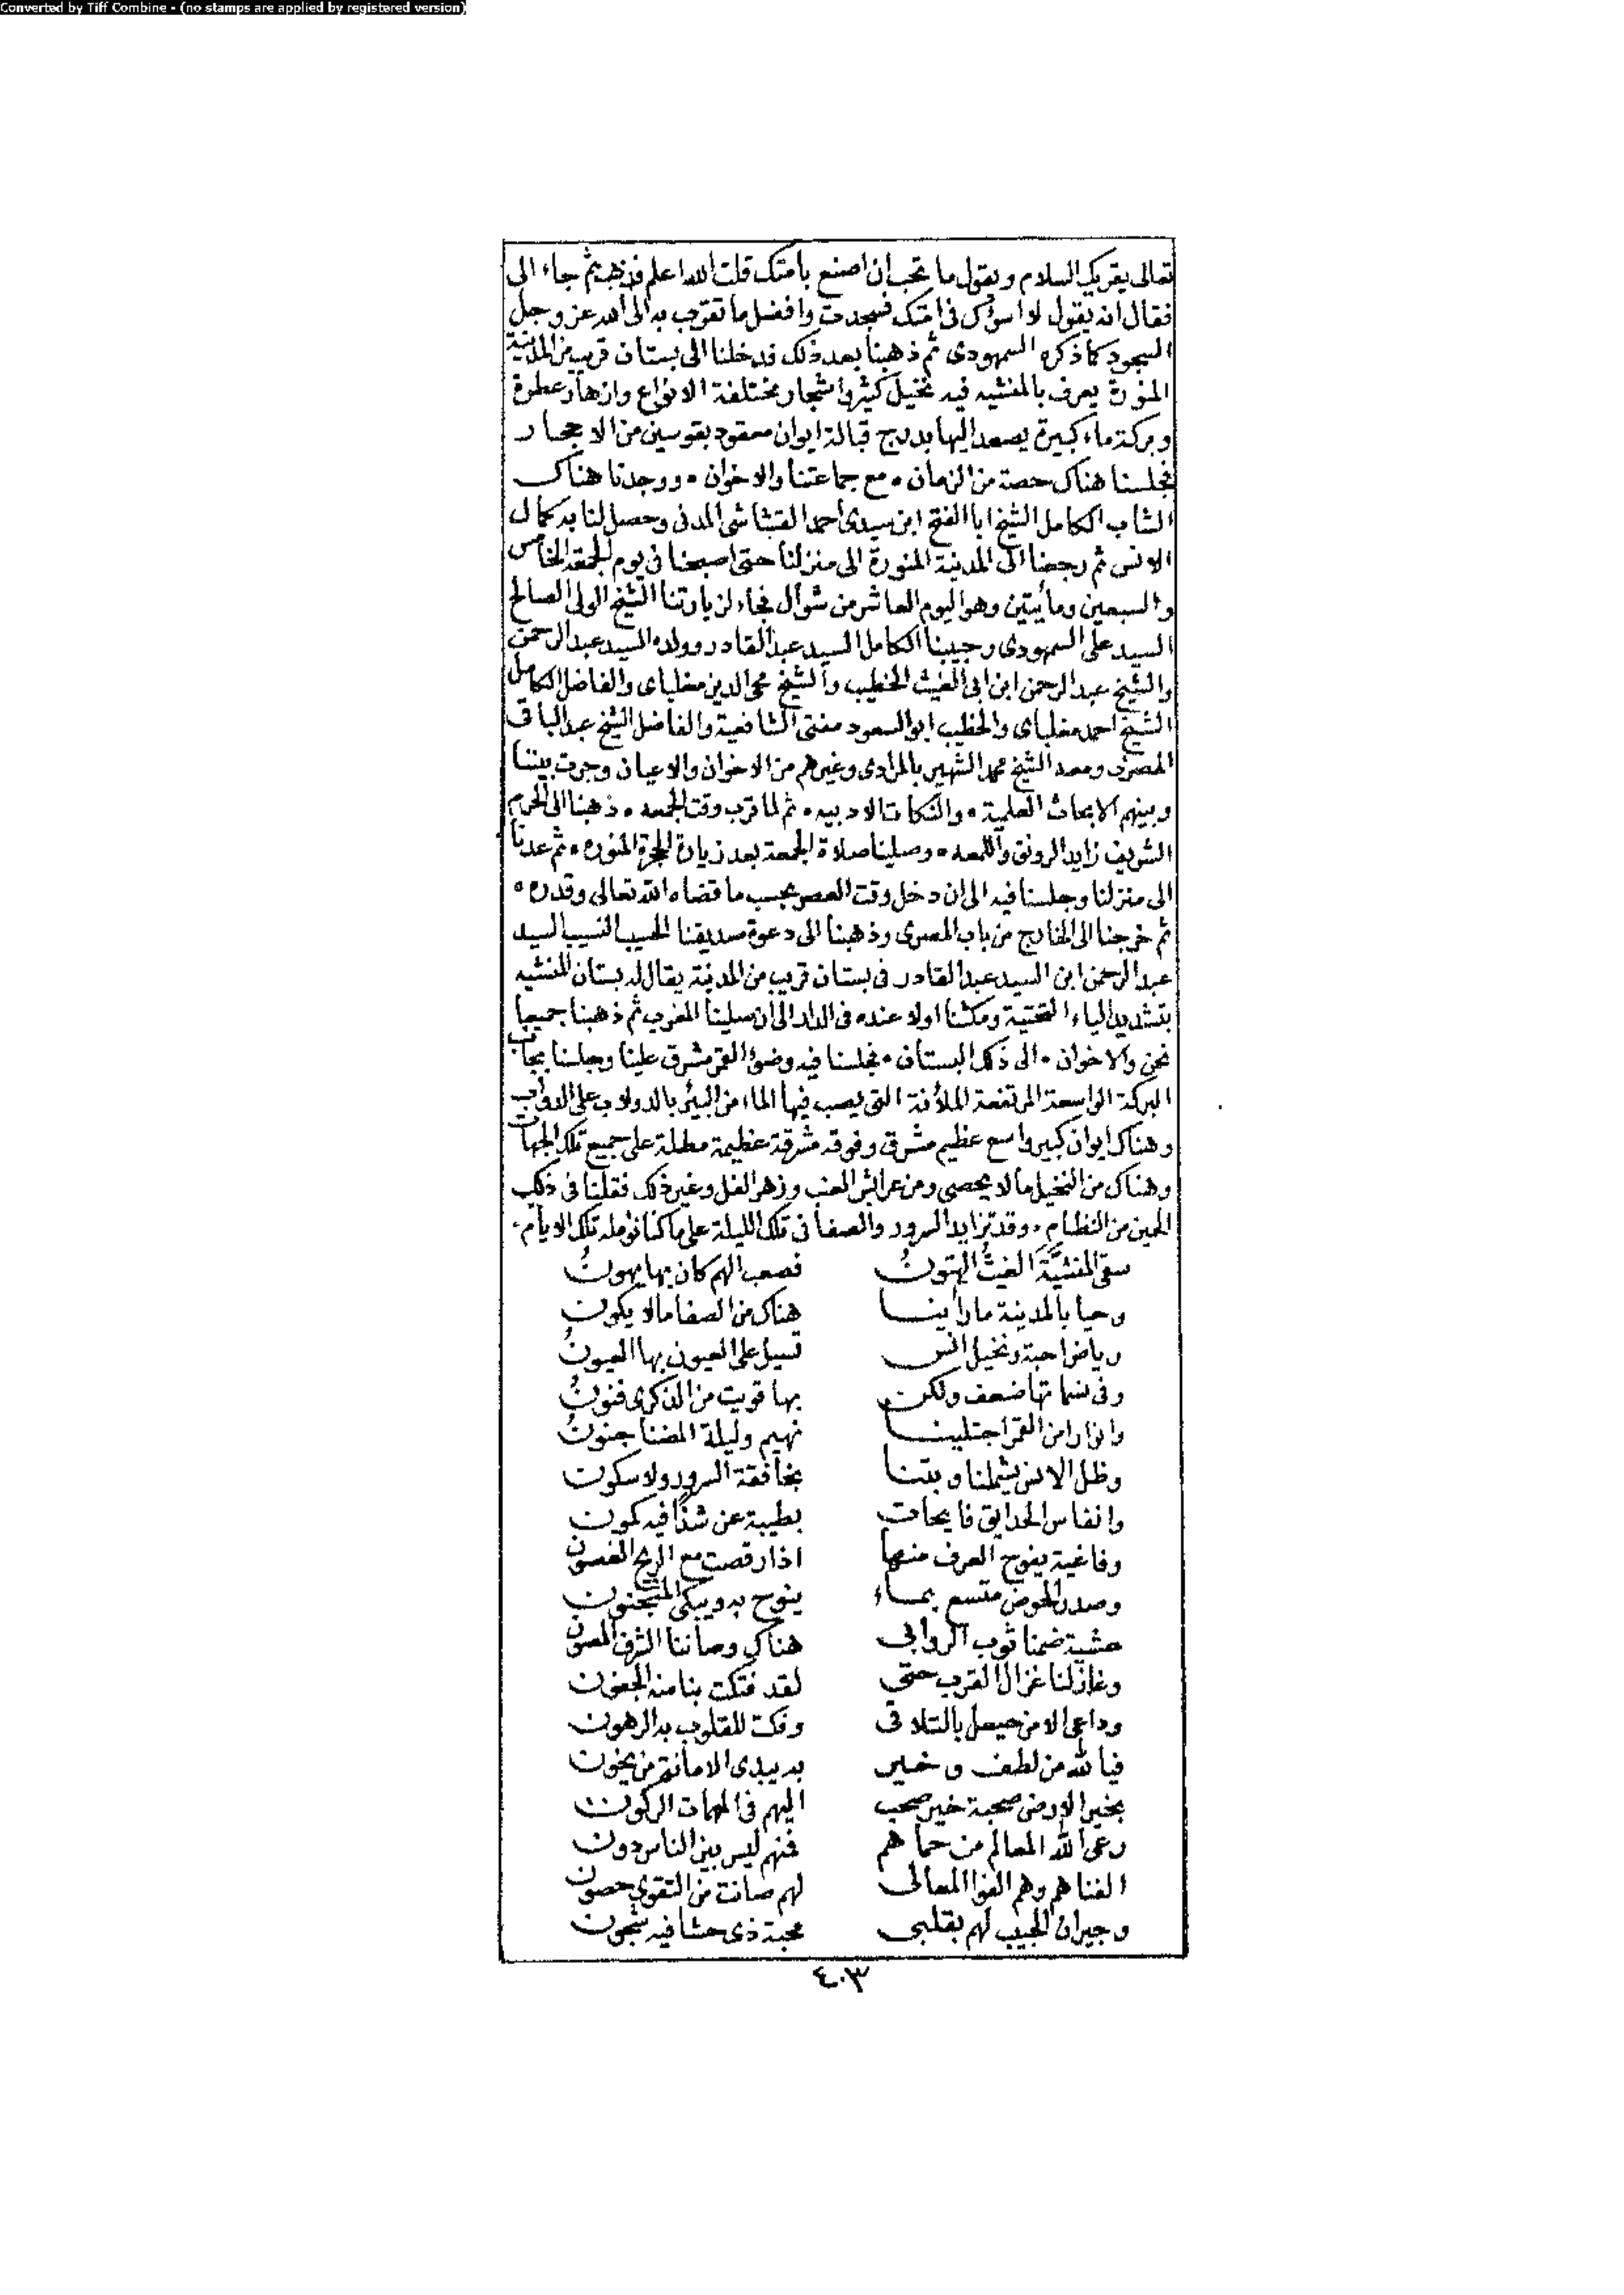 Converted by Tiff Combine - (no stamps are applied by registered version)
تعالى يقريك السلام ويقول ما تحب ان اصنع بامتك قلت الله اعلم فذهب ثم جاء الى
فقال انه يقول لا اسؤك في امتك فسجدت وافضل ما تقرب به الى الله عز وجل
السجود كما ذكره السمهودى ثم ذهبنا بعد ذلك فدخلنا الى بستان قريب من المدينة
المنورة يعرف بالمنشيه فيه نخيل كثير واشجار مختلفة الانواع وازهار عطرة
وبركة ماء كبيرة يصعد اليها بدرج قبالة ايوان معقود بقوسين من الاحجار
فجلسنا هناك حصة من الزمان • مع جماعتنا والاخوان • ووجدنا هناك
الشاب الكامل الشيخ ابا الفتح ابن سيدى احمد القشاشى المدنى وحصل لنا به كمال
الانس ثم رجعنا الى المدينة المنورة الى منزلنا حتى اصبحنا في يوم الجمعة الخامس
والسبعين ومأيتين وهو اليوم العاشر من شوال فجاء لزيارتنا الشيخ الولى الصالح
السيد على السمهودى وحبيبنا الكامل السيد عبد القادر وولده السيد عبد الرحمن
والشيخ عبد الرحمن ابن ابى الغيث الخطيب والشيخ محى الدين مغلباى والفاضل الكامل
الشيخ احمد مغلباى والخطيب ابو السعود مفتى الشافعية والفاضل الشيخ عبد الباقى
المصرى ومعه الشيخ محمد الشهير بالمرادى وغيرهم من الاخوان والاعيان وجرت بيننا
وبينهم الابحاث العلمية • والنكات الادبيه • ثم لما قرب وقت الجمعه • ذهبنا الى الحرم
الشريف زايد الرونق واللمعه • وصلينا صلاة الجمعة بعد زيارة الحجرة المنوره • ثم عدنا
الى منزلنا وجلسنا فيه الى ان دخل وقت العصر بحسب ما قضاه الله تعالى وقدره •
ثم خرجنا الى الخارج من باب المصرى وذهبنا الى دعوة صديقنا الحسيب النسيب السيد
عبد الرحمن ابن السيد عبد القادر في بستان قريب من المدينة يقال له بستان المنشيه
بتشديد الياء التحتية ومكثنا اولا عنده في الدار الى ان صلينا المغرب ثم ذهبنا جميعا
نحن والاخوان • الى ذلك البستان • فجلسنا فيه وضوء القمر مشرق علينا وجلسنا بجانب
البركة الواسعة المرتفعة الملآنة التى يصب فيها الماء من البئر بالدولاب على الدواب
وهناك ايوان كبير واسع عظيم مشرق وفوقه مشرقة عظيمة مطلة على جميع تلك الجهات
وهناك من النخيل ما لا يحصى ومن عرائش العنب وزهر الفل وغير ذلك فقلنا في ذلك
الحين من النظام • وقد تزايد السرور والصفا في تلك الليلة على ما كنا نؤمله تلك الايام •
سقى المنشيَّةَ الغيثُ الهتونُ فصعب الهم كان بها يهونُ
وحيا بالمدينة ما رأينا هناك من الصفا ما لا يكون
رياض احبة ونخيل انس تسيل على العيون بها العيونُ
وفي نسماتها ضعف ولكن بها قويت من الذكرى فنونُ
وانوارا من القمر اجتلينا نهيم وليلة المضنا جنونُ
وظل الانس يشملنا وبتنا بخافقة السرور ولا سكون
وانفاس الحدايق فايحات بطيبة عن شذًا فيه كمون
وفاغية يفوح العرف منها اذا رقصت مع الريح الغصون
وصدر الحوض متسع بماء ينوح به ويبكى المنجنون
عشية ضمنا ثوب الروابى هناك وصاننا الشرف المصون
وغازلنا غزال القرب حتى لقد فتكت بنا منه الجفون
وداعى الامن حيعل بالتلاقى وفكت للقلوب به الرهون
فيا لله من لطف وخير به يبدى الامانة من يخون
بخير الارض صحبة خير صحب اليهم في المهمات الركون
رعى الله المعالم من حماهم فمنهم ليس بين الناس دون
الفناهم وهم الفوا المعالى لهم صانت من التقوى حصون
وجيران الحبيب لهم بقلبى محبة ذى حشا فيه شجون
٤٠٣